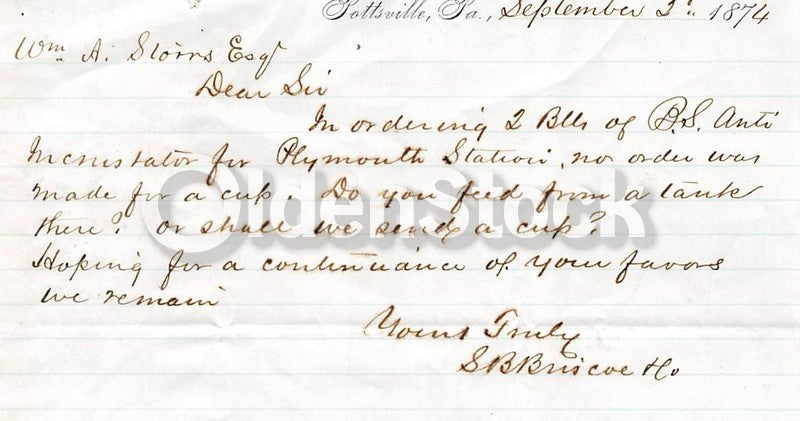 Pottsville, Pa., September 3d. 1874
Wm A. Storrs Esqr
Dear Sir
In ordering 2 Blls of B.S. Anti
Incrustator for Plymouth Station, no order was
made for a cup. Do you feed from a tank
there? or shall we send a cup?
Hoping for a continuance of your favors
we remain
Yours Truly
S B Briscoe &Co
OldenStock